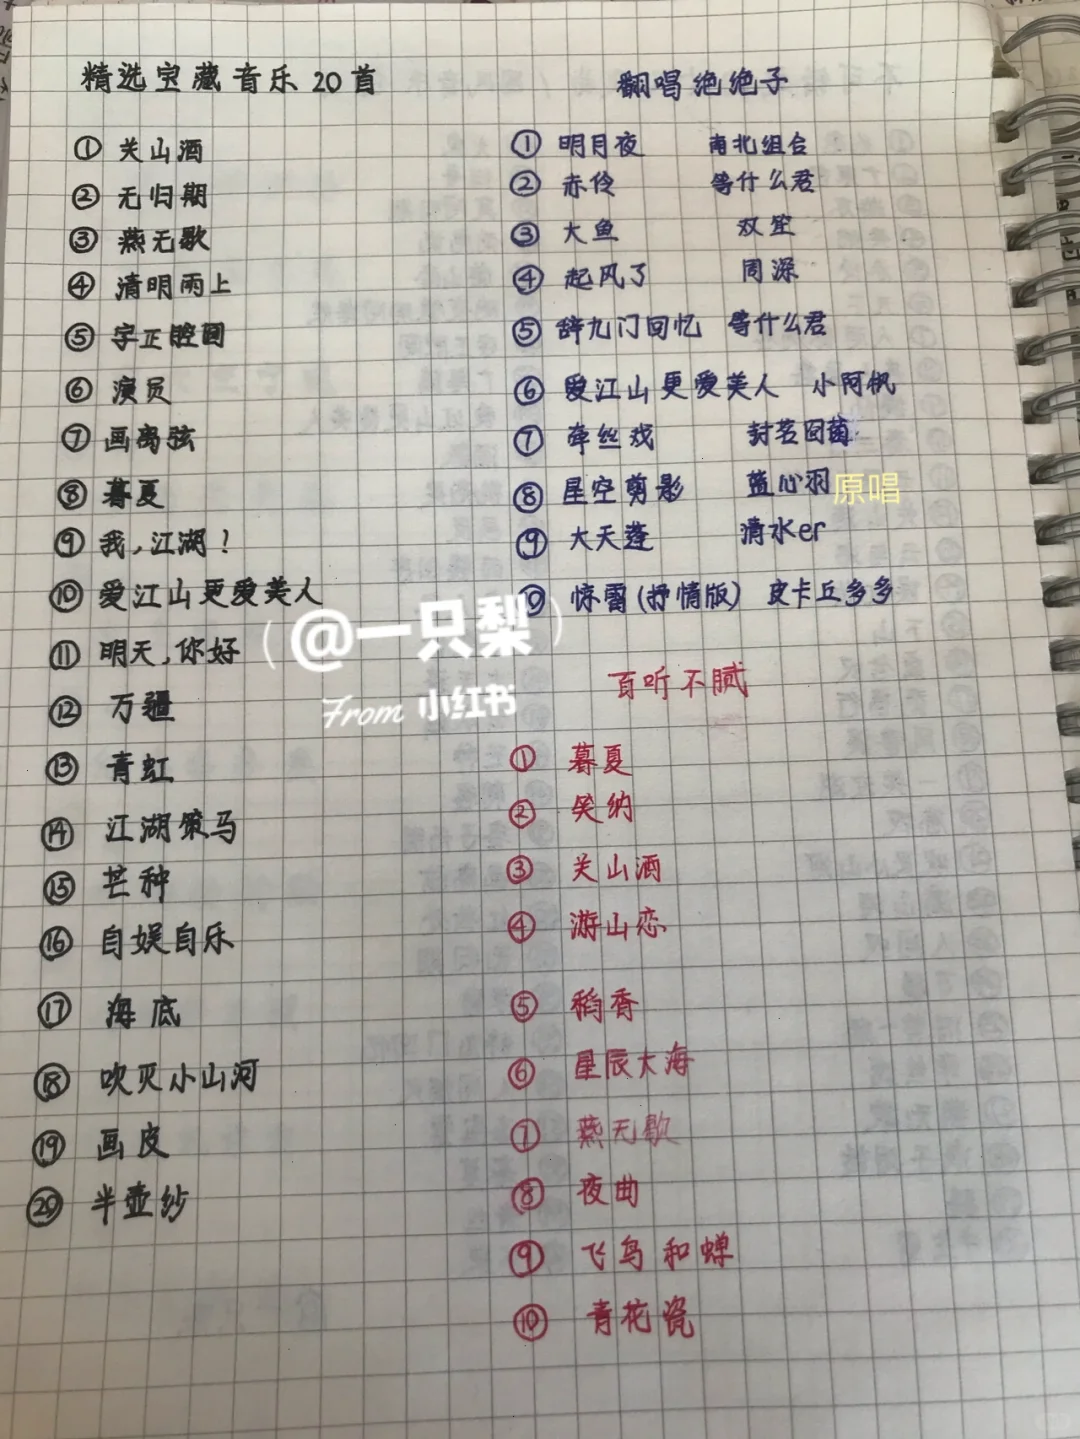 精选宝藏音乐20首
① 关山酒
② 无归期
③ 燕无歇
④ 清明雨上
⑤ 字正腔圆
⑥ 演员
⑦ 画离弦
⑧ 暮夏
⑨ 我,江湖!
⑩ 爱江山更爱美人
⑪ 明天,你好
⑫ 万疆
⑬ 青虹
⑭ 江湖策马
⑮ 芒种
⑯ 自娱自乐
⑰ 海底
⑱ 吹灭小山河
⑲ 画皮
⑳ 半壶纱
翻唱绝绝子
① 明月夜 南北组合
② 赤伶 等什么君
③ 大鱼 双笙
④ 起风了 周深
⑤ 辞九门回忆 等什么君
⑥ 爱江山更爱美人 小阿枫
⑦ 牵丝戏 封茗囧菌
⑧ 星空剪影 蓝心羽 原唱
⑨ 大天蓬 清水er
⑩ 惊雷(抒情版) 皮卡丘多多
(@一只梨)
From 小红书
百听不腻
① 暮夏
② 笑纳
③ 关山酒
④ 游山恋
⑤ 稻香
⑥ 星辰大海
⑦ 燕无歇
⑧ 夜曲
⑨ 飞鸟和蝉
⑩ 青花瓷